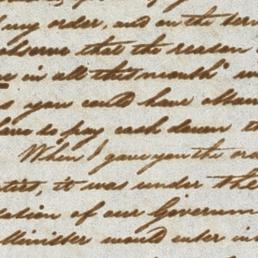 my order, and on the ter
observe that the reason
in in all this month
s you could have
have to pay cash down t
When I gave you the or
it was under the
ation of our Governm
Minister would enter in